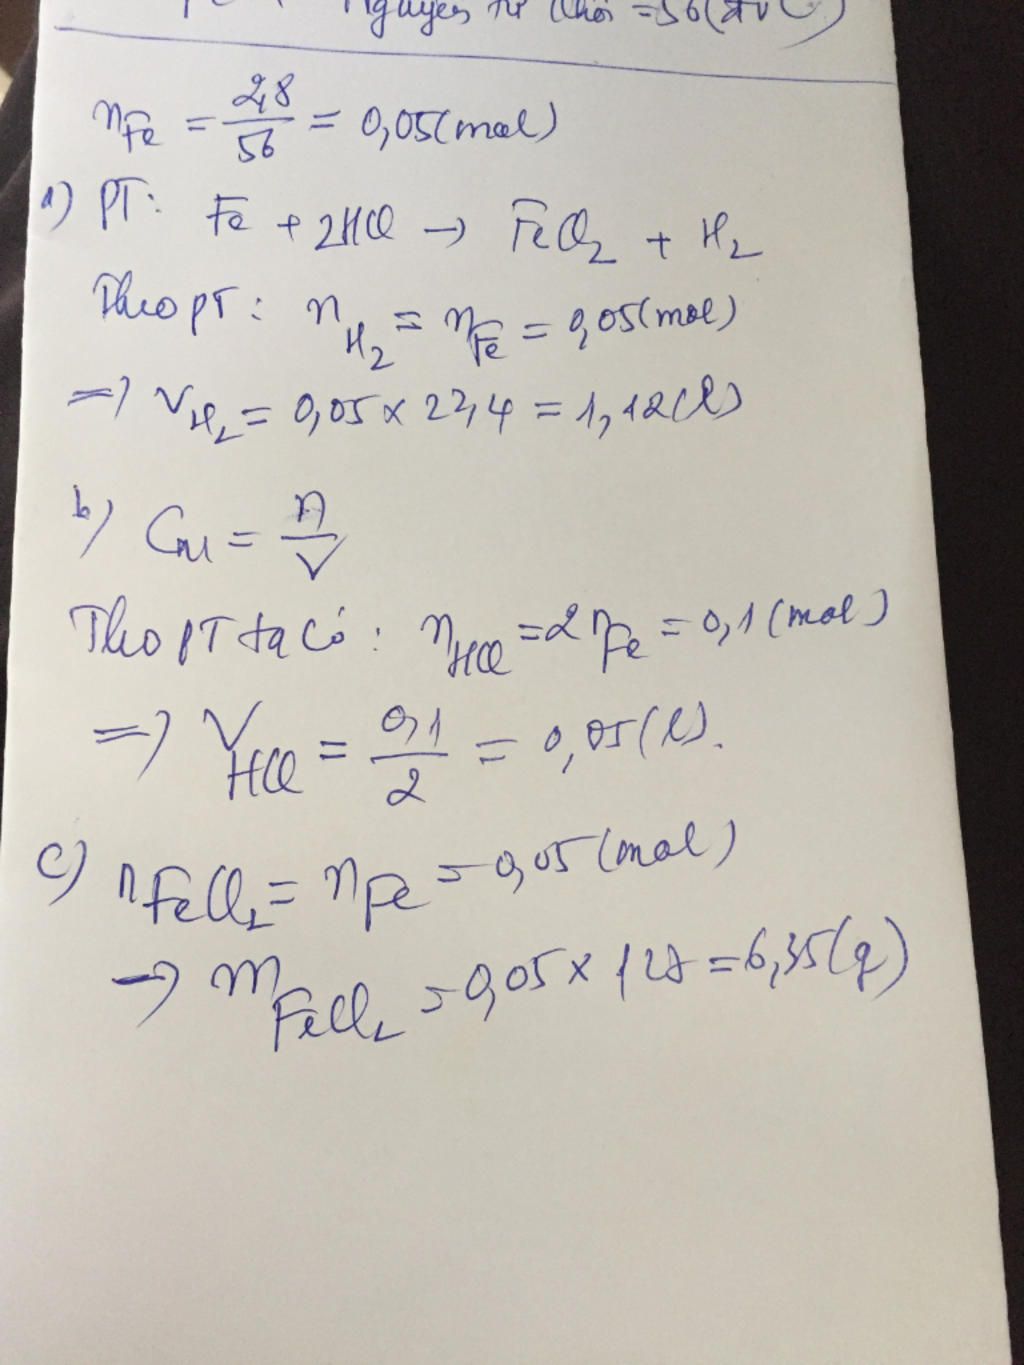 Nguyên tử khối = 56 (đvC)
nFe = 2,8/56 = 0,05(mol)
a) PT: Fe + 2HCl → FeCl2 + H2
Theo pT: nH2 = nFe = 0,05(mol)
=) VH2 = 0,05 x 22,4 = 1,12(l)
b) CM = n/V
Theo pT ta có: nHCl = 2nFe = 0,1(mol)
=) VHCl = 0,1/2 = 0,05(l).
c) nFeCl2 = nFe = 0,05(mol)
→ mFeCl2 = 0,05 x 127 = 6,35(g)